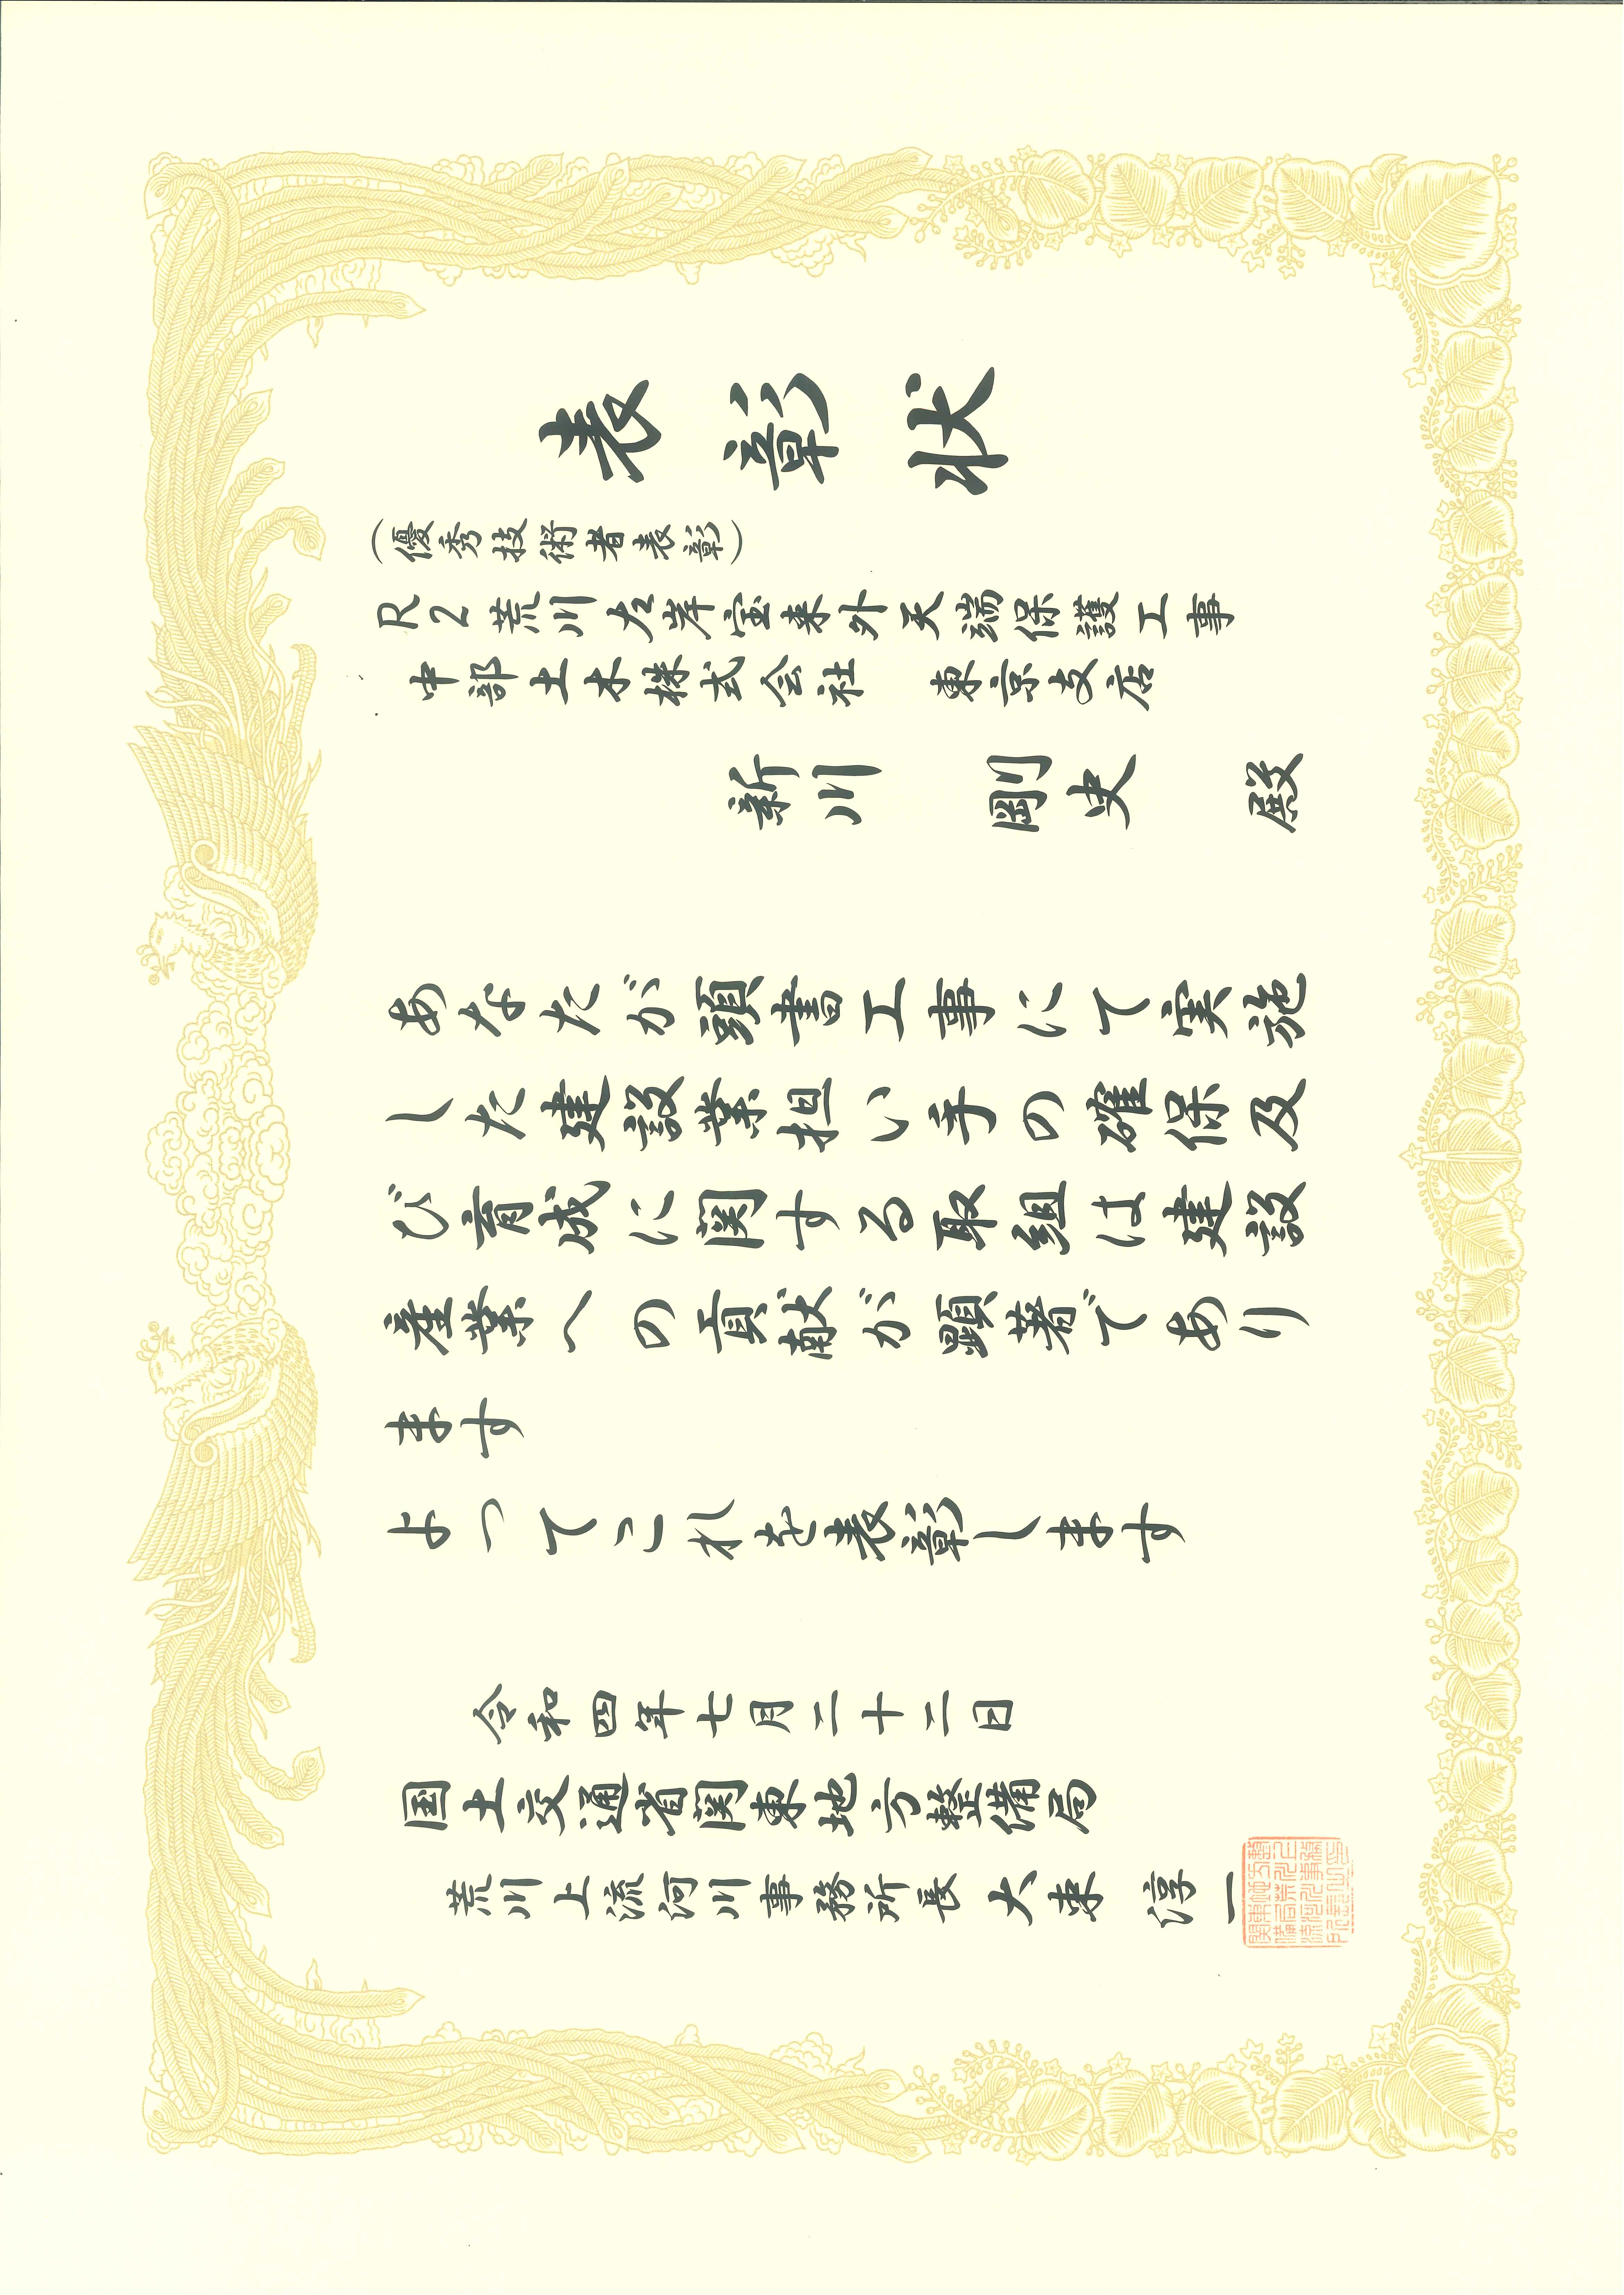 表彰状
（優秀技術者表彰）
R2荒川左岸宝来外天端保護工事
中部土木株式会社　東京支店
新川　剛史　殿
あなたが頭書工事にて実施
した建設業担い手の確保及
び育成に関する取組は建設
産業への貢献が顕著であり
ます
よってこれを表彰します
令和四年七月二十二日
国土交通省関東地方整備局
荒川上流河川事務所長　大束　淳一